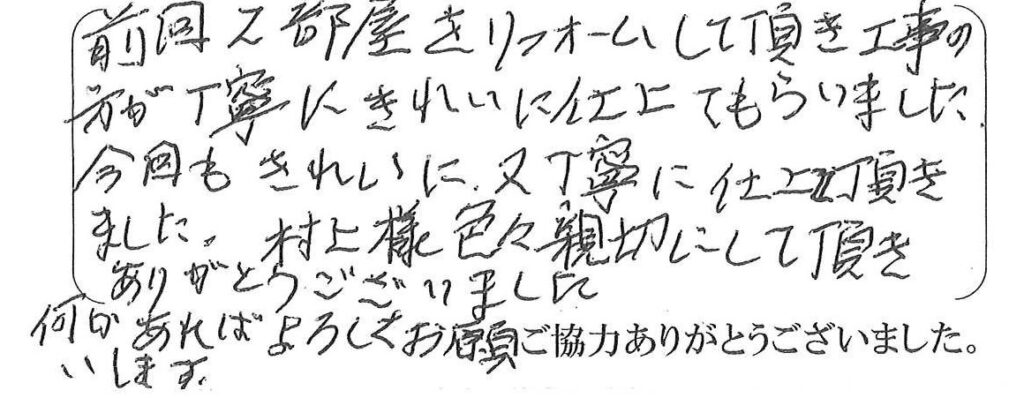 前回２部屋きリフォームして頂き工事の
方が丁寧にきれいに仕上てもらいました.
今回もきれいに、又丁寧に仕上て頂き
ました。村上様色々親切にして頂き
ありがとうございました
何かあればよろしくお願
いします。
ご協力ありがとうございました。